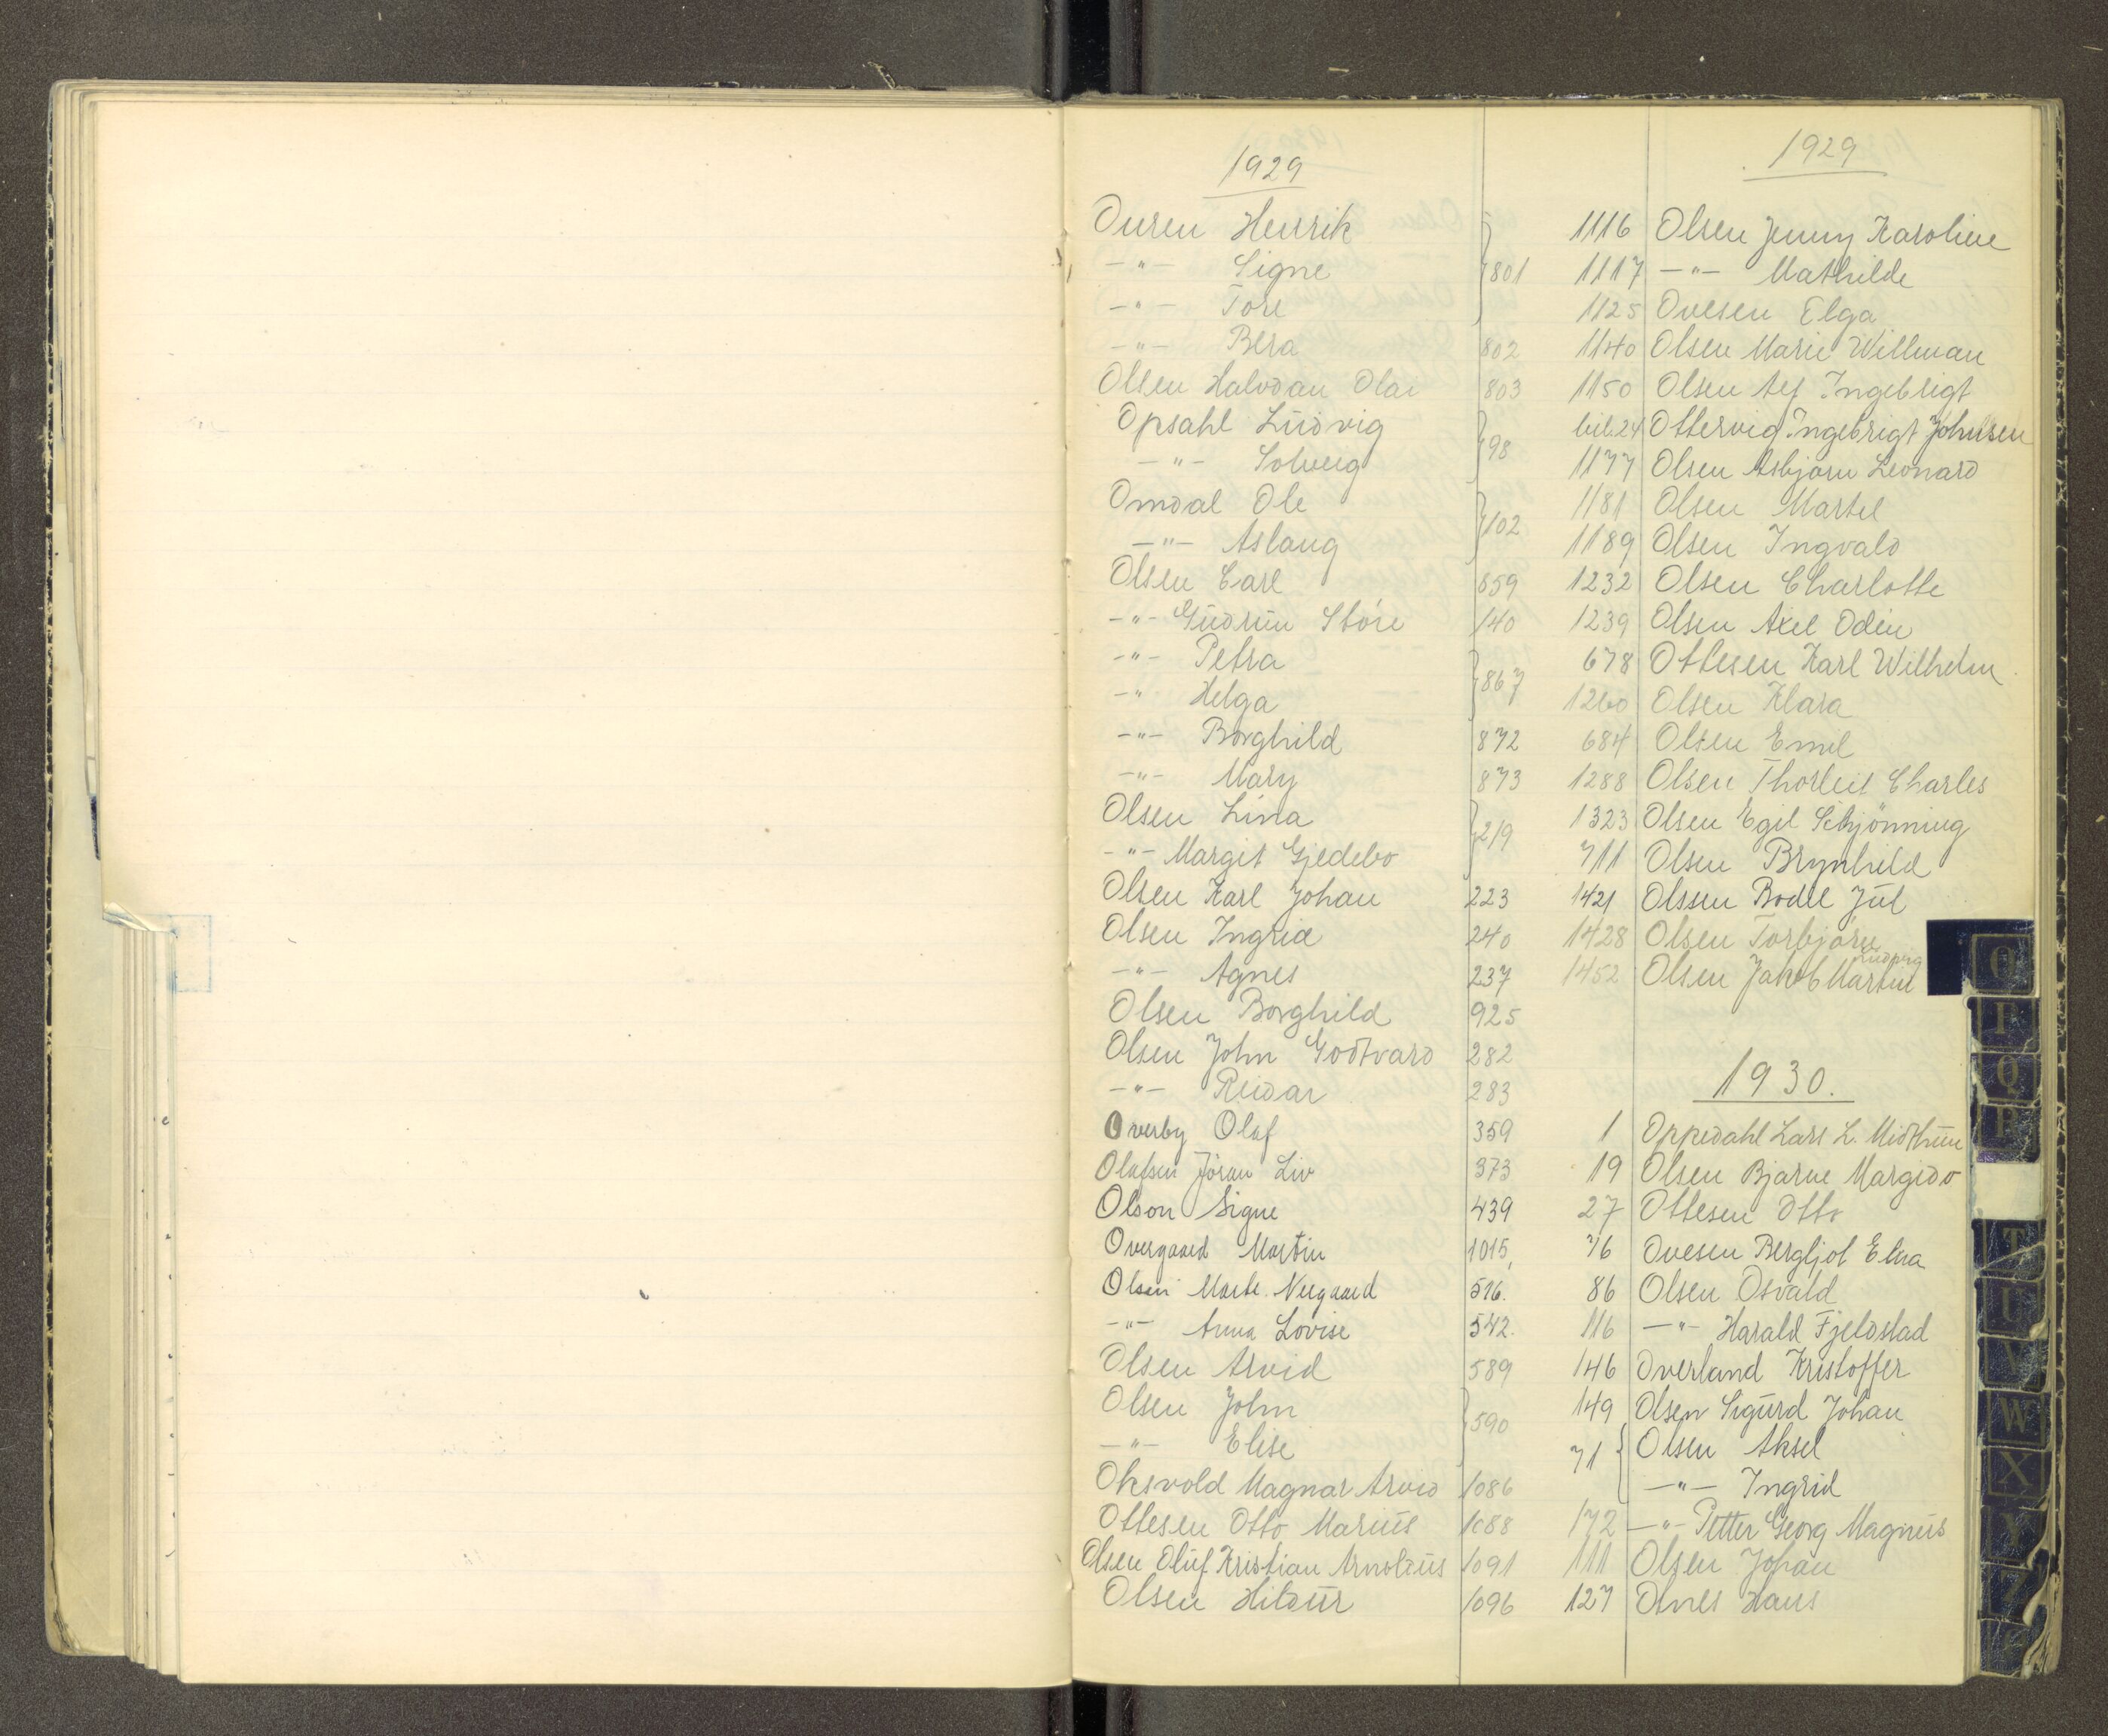 1929
Ouren Henrik
-"- Signe } 801
-"- Tore
-"- Bera 802
Olsen Halvdan Olai 803
Opsahl Ludvig } 98
-"- Solveig
Omdal Ole } 102
-"- Aslaug
Olsen Carl 859
-"- Gudrun Støre 140
-"- Petra } 867
-"- Helga
-"- Borghild 872
-"- Mary 873
Olsen Lina } 219
-"- Margit Gjedebo
Olsen Karl Johan 223
Olsen Ingrid 240
-"- Agnes 237
Olsen Borghild 925
Olsen John Godtvard 282
-"- Reidar 283
Overby Olaf 359
Olafsen Jöran Liv 373
Olson Signe 439
Overgaard Martin 1015
Olsen Marte Neegaard 516.
-"- Anna Lovise 542.
Olsen Arvid 589
Olsen John } 590
-"- Elise
Oksvold Magnar Arvid 1086
Ottesen Otto Marius 1088
Olsen Oluf Kristian Arnoldus 1091
Olsen Hildur 1096
1929
1116 Olsen Jenny Karoline
1117 -"- Mathilde
1125 Ovesen Elga
1140 Olsen Marie Willman
1150 Olsen Alf Ingebrigt
bil.24 Ottervig Ingebrigt Johnsen
1177 Olsen Asbjørn Leonard
1181 Olsen Martel
1189 Olsen Ingvald
1232 Olsen Charlotte
1239 Olsen Axel Odin
678 Ottesen Karl Wilhelm
1260 Olsen Klara
684 Olsen Emil
1288 Olsen Thorleif Charles
1323 Olsen Egil Schjönning
711 Olsen Brynhild
1421 Olssen Bodil Jul
1428 Olsen Torbjørn
Ludvig
1452 Olsen Jakob Martin
1930.
1 Oppedahl Lars L. Midthun
19 Olsen Bjarne Margido
27 Ottesen Otto
76 Ovesen Bergljot Elna
86 Olsen Osvald
116 -"- Harald Fjeldstad
146 Overland Kristoffer
149 Olsen Sigurd Johan
71 { Olsen Aksel
-"- Ingrid
172 -"- Petter Georg Magnus
111 Olsen Johan
127 Olnes Hans
O
P
Q
R
T
U
V
W
X
Y
Z